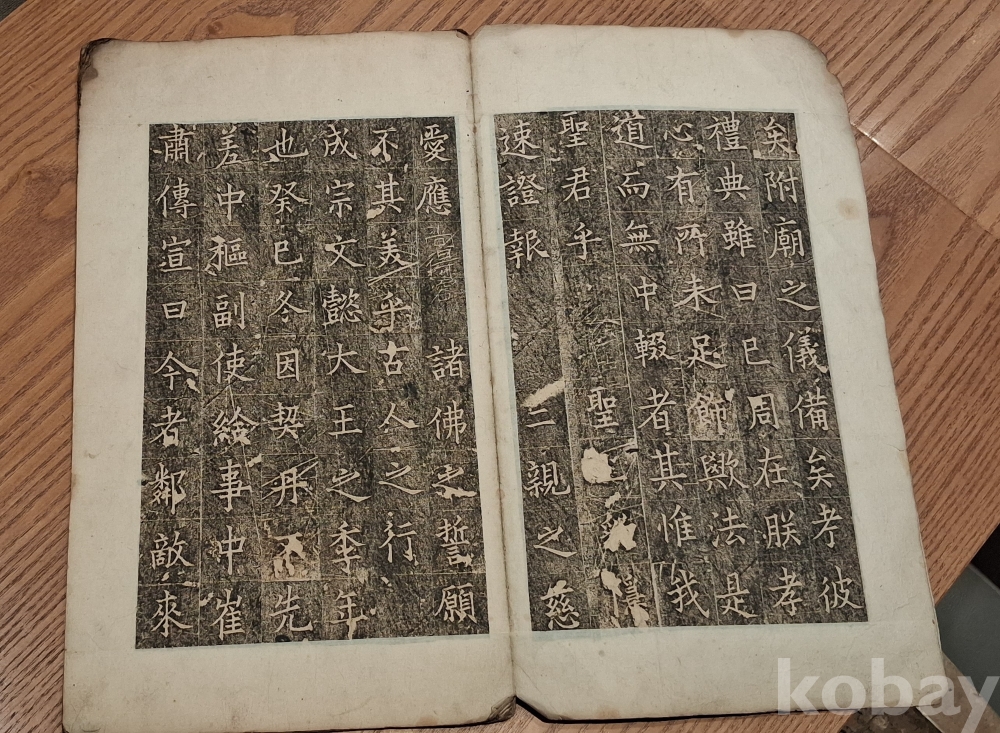 矣附廟之儀備矣孝彼
禮典雖曰已周在朕孝
心有所未足飾歟法是
道而無中輟者其惟我
聖君乎 聖
速證報 二親之慈
愛應 諸佛之誓願
不其美乎古人之行
成宗文懿大王之季年
也癸巳冬因契丹不先
差中樞副使給事中崔
肅傳宣曰今者鄰敵來
kobay